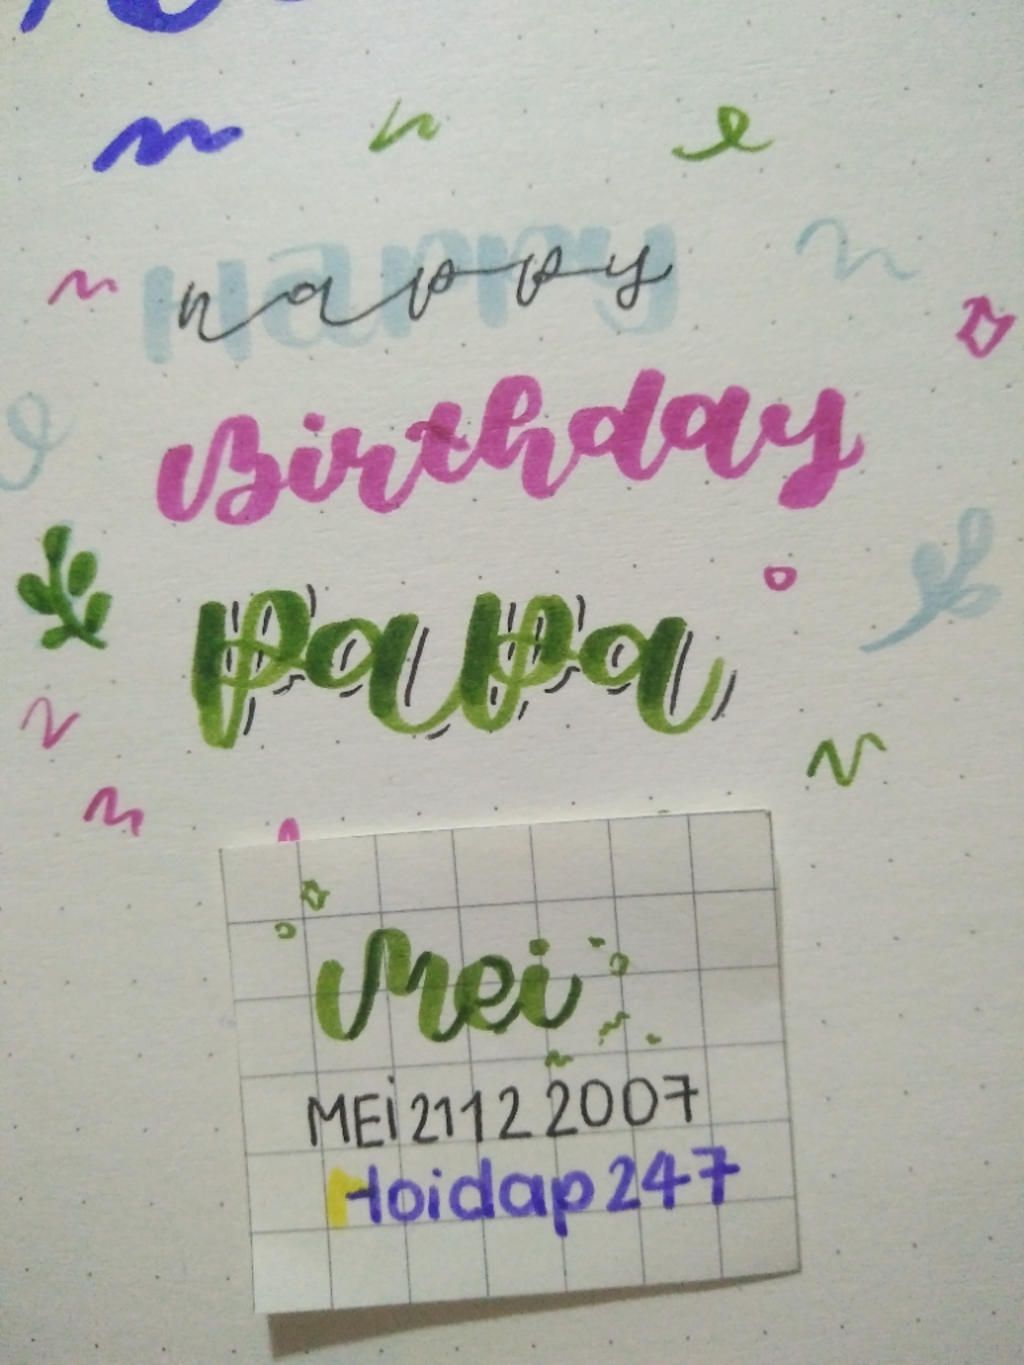 Happy
Birthday
Papa
Mei
MEi21122007
Hoidap247